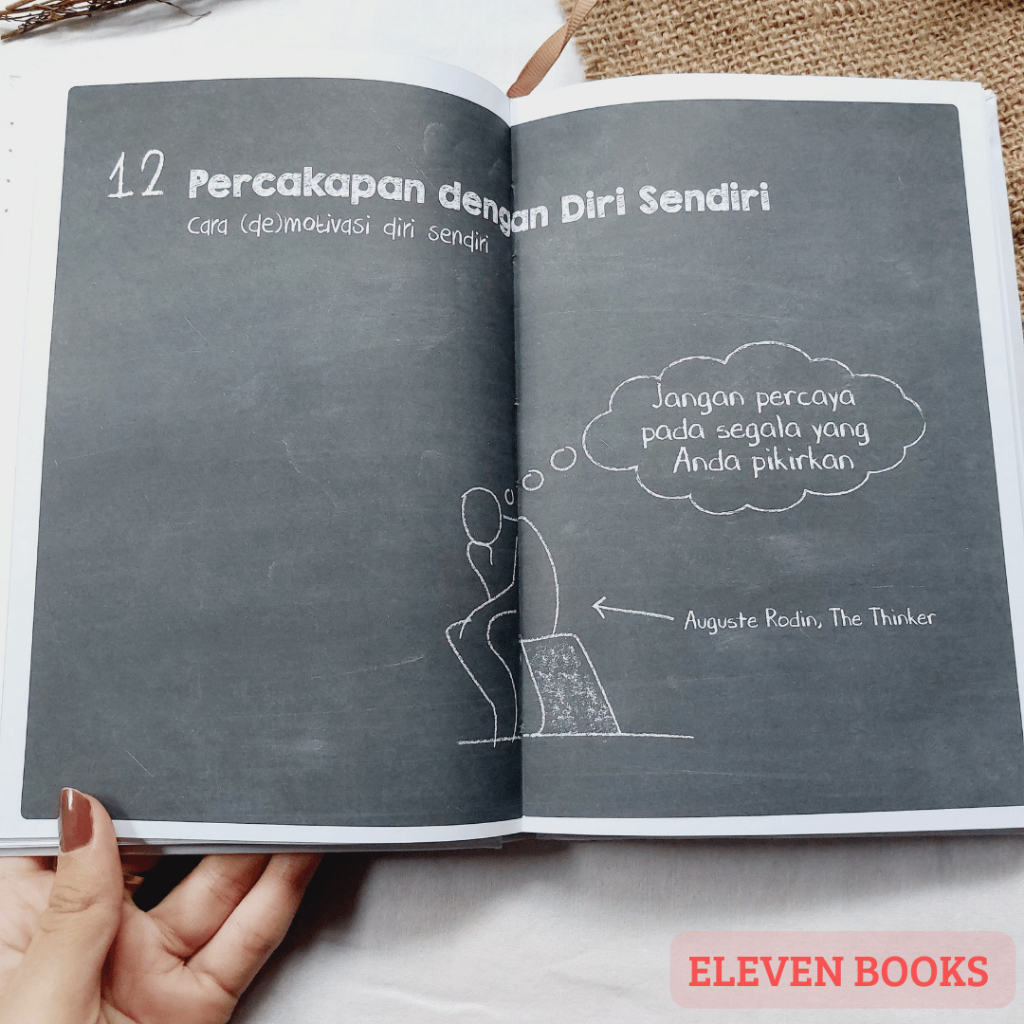 12 Percakapan dengan Diri Sendiri
Cara (de)motivasi diri sendiri
Jangan percaya
pada segala yang
Anda pikirkan
Auguste Rodin, The Thinker
ELEVEN BOOKS